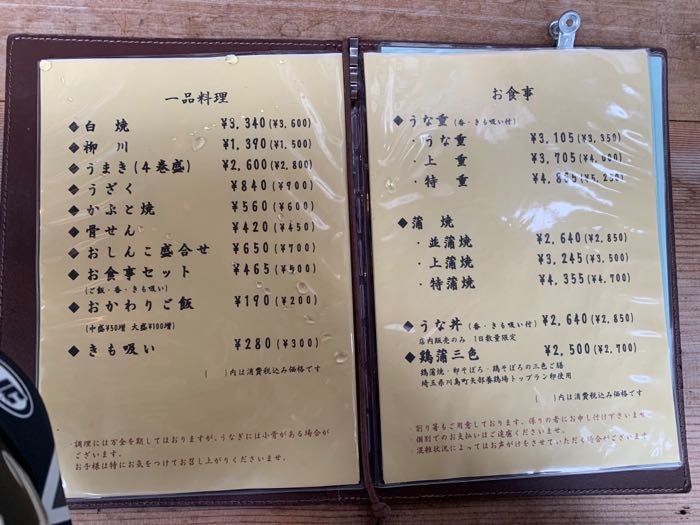 一品料理
◆白焼 ¥3,340(¥3,600)
◆柳川 ¥1,390(¥1,500)
◆うまき(4巻盛) ¥2,600(¥2,800)
◆うざく ¥840(¥900)
◆かぶと焼 ¥560(¥600)
◆骨せん ¥420(¥450)
◆おしんこ盛合せ ¥650(¥700)
◆お食事セット ¥465(¥500)
(ご飯・香・きも吸い)
◆おかわりご飯 ¥190(¥200)
(中盛¥50増 大盛¥100増)
◆きも吸い ¥280(¥300)
( )内は消費税込み価格です
・調理には万全を期してはおりますが、うなぎには小骨がある場合が
ございます。
お子様は特にお気をつけてお召し上がりくださいませ。
お食事
◆うな重(香・きも吸い付)
・うな重 ¥3,105(¥3,350)
・上重 ¥3,705(¥4,000)
・特重 ¥4,865(¥5,250)
◆蒲焼
・並蒲焼 ¥2,640(¥2,850)
・上蒲焼 ¥3,245(¥3,500)
・特蒲焼 ¥4,355(¥4,700)
◆うな丼(香・きも吸い付) ¥2,640(¥2,850)
店内販売のみ 1日数量限定
◆鶏蒲三色 ¥2,500(¥2,700)
鶏蒲焼・卵そぼろ・鶏そぼろの三色ご膳
埼玉県川島町矢部養鶏場トップラン卵使用
( )内は消費税込み価格です
・割り箸もご用意しております。係りの者にお申し付け下さいませ
・個別でのお支払いはご遠慮くださいませ。
・混雑状況によってはお声がけをさせていただく場合がございます